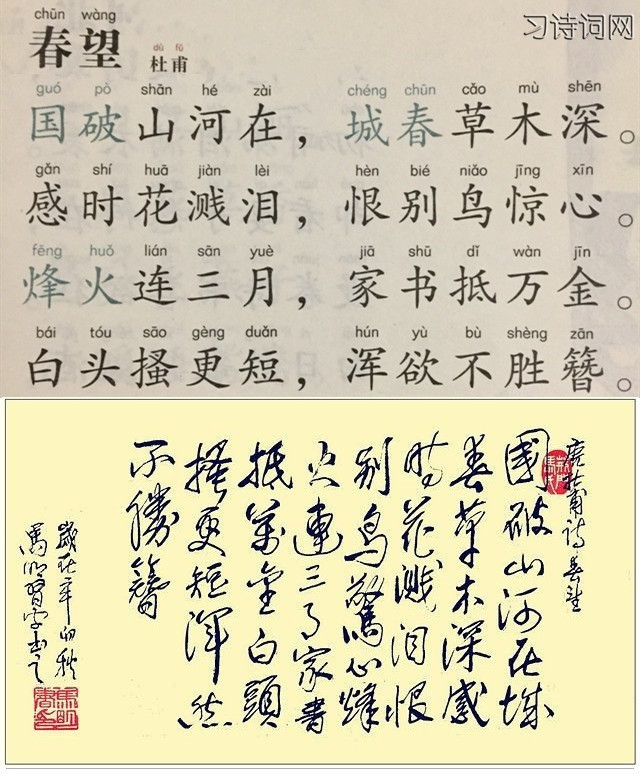 习诗词网
chūn wàng
春望
dù fǔ
杜甫
guó pò shān hé zài chéng chūn cǎo mù shēn
国破山河在，城春草木深。
gǎn shí huā jiàn lèi hèn bié niǎo jīng xīn
感时花溅泪，恨别鸟惊心。
fēng huǒ lián sān yuè jiā shū dǐ wàn jīn
烽火连三月，家书抵万金。
bái tóu sāo gèng duǎn hún yù bù shèng zān
白头搔更短，浑欲不胜簪。
杜甫詩春望
國破山河在城
春草木深感
時花濺泪恨
别鳥驚心烽
火連三月家書
抵萬金白頭
搔更短渾
不勝簪
歲在辛卯秋
習字書之